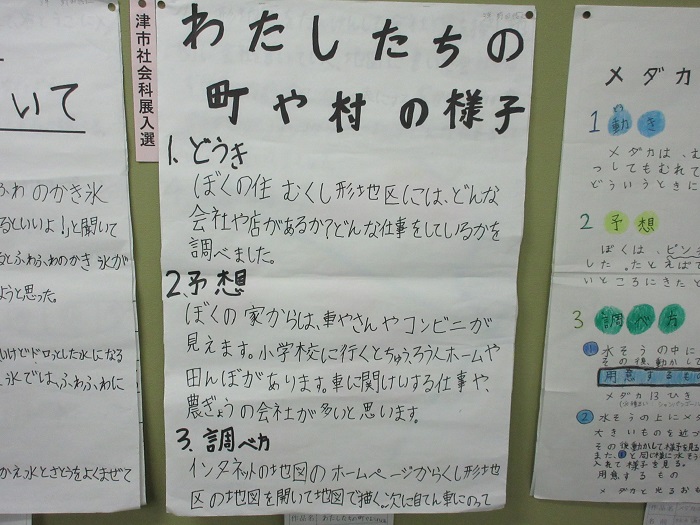 いて
ふわ のかき氷
るといいよ!」と聞いて
るとふわふわのかき氷が
ようと思った。
いけどドロッとした水になる
氷では、ふわふわに
かえ、水とさとうをよくまぜて
津市社会科展入選
わたしたちの
町や村の様子
1.どうき
ぼくの住 むくし形地区には、どんな
会社や店があるか?どんな仕事をしているかを
調べました。
2.予想
ぼくの 家からは、車やさんやコンビニが
見えます。小学校に行くとちゅうろう人ホームや
田んぼがあります。車に関けいする仕事や、
農ぎょうの会社が多いと思います。
3.調べ方
インタネットの地図のホームページからくし形地
区の地図を開いて地図で描く。次に自てん車にのって
作品名 わたしたちの町や村の様子
メダカ
1 動き
メダカは、む
っしてもむれて
どういうときに
2 予想
ぼくは、ピンチ
した。たとえばて
いところにきたと
3 調べ方
① 水そうの中に
その後、動かして
用意するもの
メダカ13ひき
② 水そうの上にメダ
大きいものを近づ
その後動かして様子を見る
また、①と同じ様に水そう
入れて様子を見る。
用意するもの
メダカと光るおも